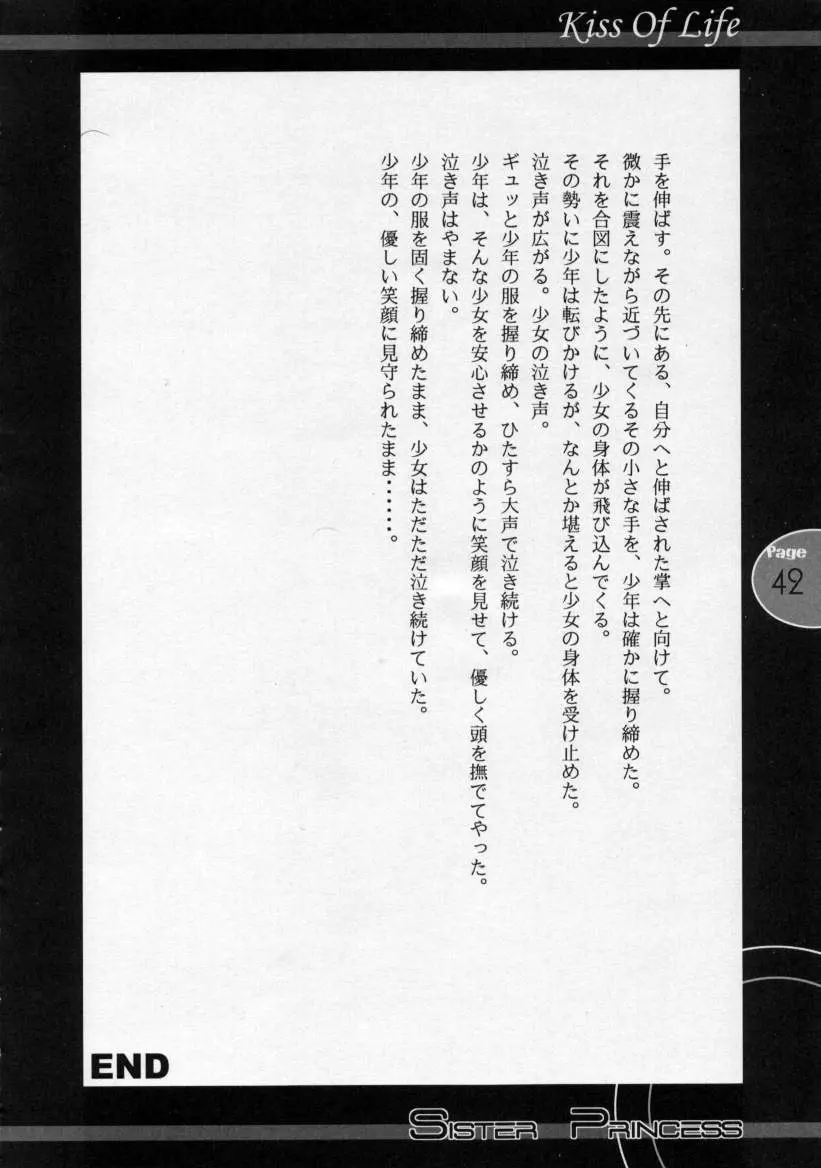 Kiss Of Life
手を伸ばす。その先にある、自分へと伸ばされた掌へと向けて。
微かに震えながら近づいてくるその小さな手を、少年は確かに握り締めた。
それを合図にしたように、少女の身体が飛び込んでくる。
その勢いに少年は転びかけるが、なんとか堪えると少女の身体を受け止めた。
泣き声が広がる。少女の泣き声。
ギュッと少年の服を握り締め、ひたすら大声で泣き続ける。
少年は、そんな少女を安心させるかのように笑顔を見せて、優しく頭を撫でてやった。
泣き声はやまない。
少年の服を固く握り締めたまま、少女はただただ泣き続けていた。
少年の、優しい笑顔に見守られたまま・・・・・・・。
Page
42
END
SISTER PRINCESS